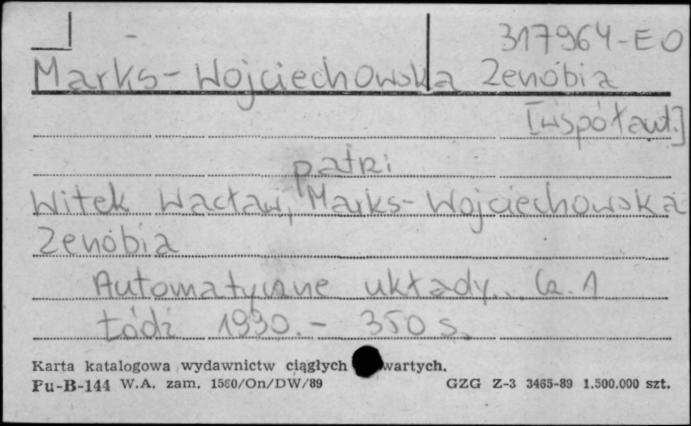 317964-EO
Marks-Wojciechowska Zenobia
[współaut.]
patrz
Witek Wacław, Marks-Wojciechowska
Zenobia
Automatyczne układy... Cz. 1
Łódź 1990.- 350 s.
Karta katalogowa wydawnictw ciągłych wartych.
Pu-B-144 W.A. zam. 1560/On/DW/89 GZG Z-3 3465-89 1.500.000 szt.